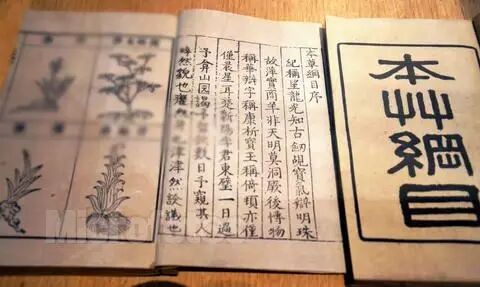 本艸綱目
本草綱目序
紀稱望龍光知古劍覘寶氣辯明珠
故萍實商羊非天明莫洞厥後博物
稱華辯字稱康析寶玉稱倚頓亦僅
僅晨星耳楚蘄陽李君東璧一日過
予弇山園謁予留飲數日予窺其人
睟然貌也癯然身也津津然譚議也